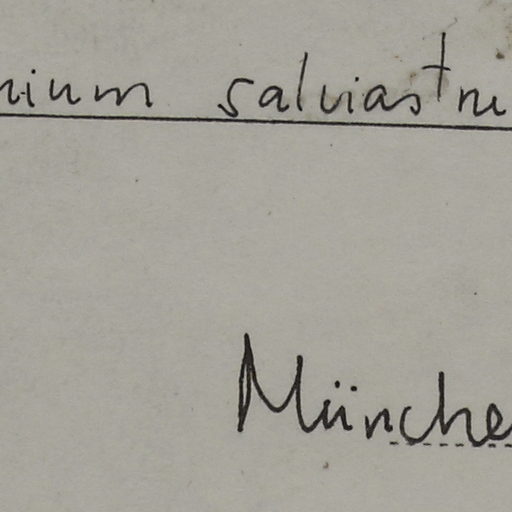 nium salviastru
Münche